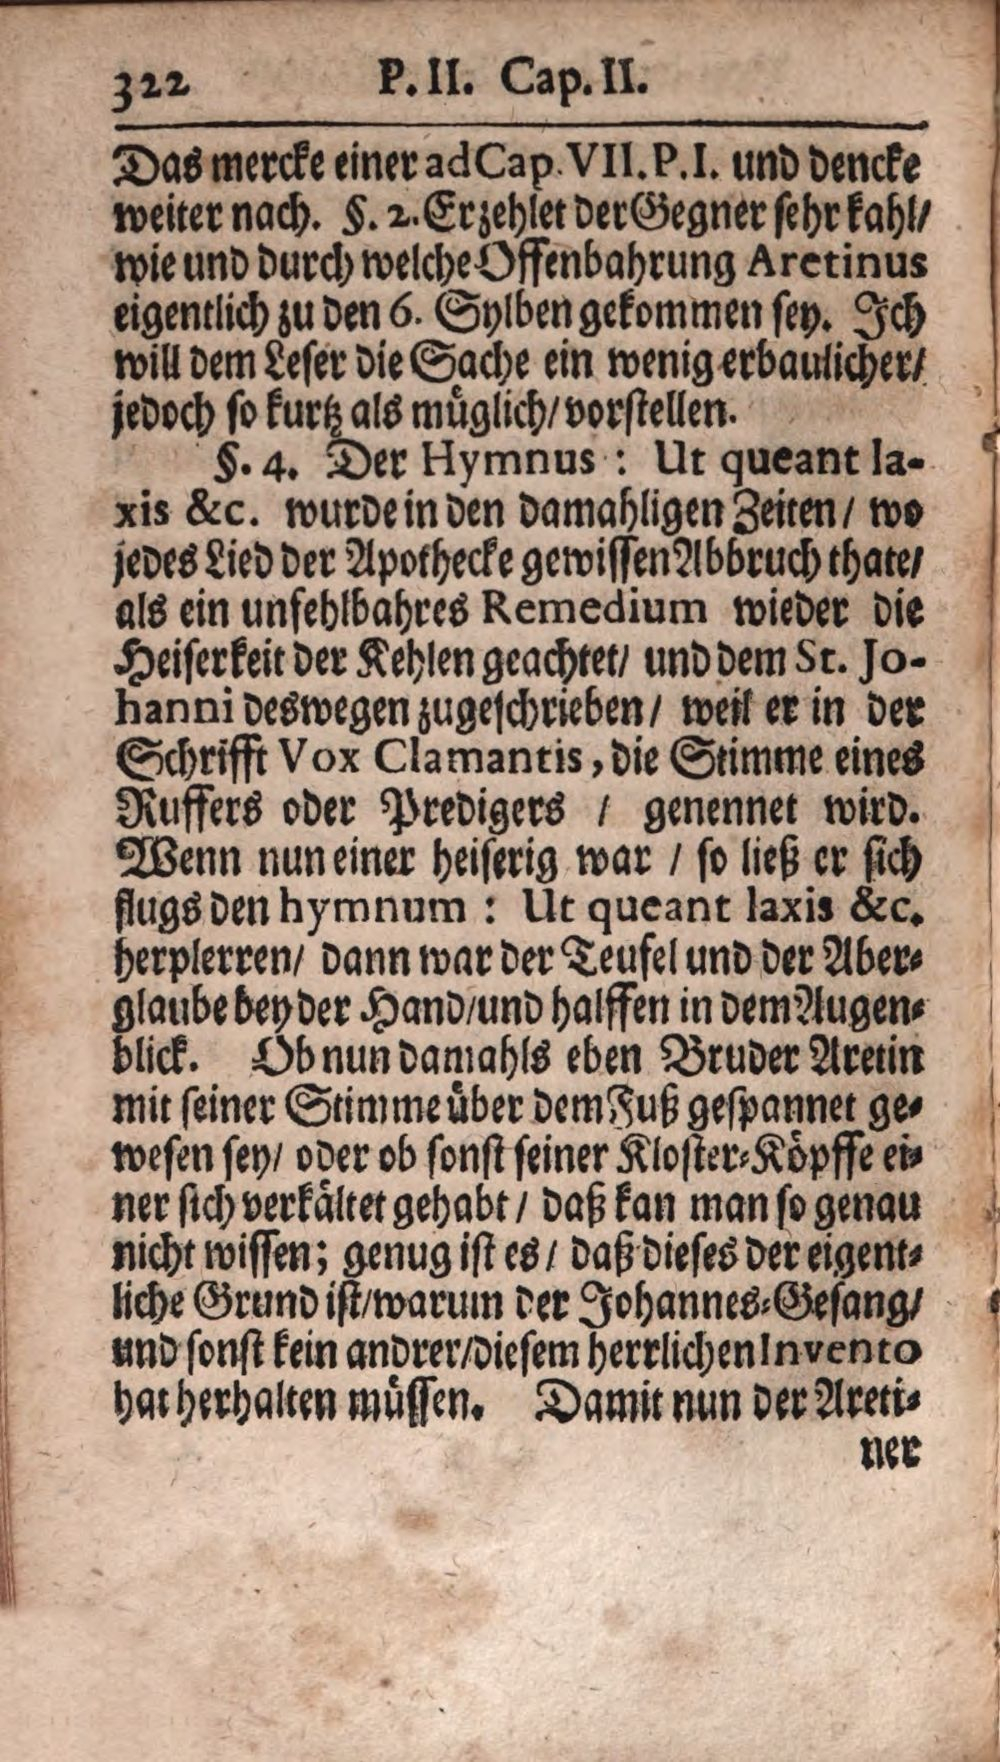 322 P. II. Cap. II.
Das mercke einer ad Cap. VII. P. I. und dencke
weiter nach. §. 2. Erzehlet der Gegner sehr kahl/
wie und durch welche Offenbahrung Aretinus
eigentlich zu den 6. Sylben gekommen sey. Ich
will dem Leser die Sache ein wenig erbaulicher/
jedoch so kurtz als müglich/ vorstellen.
§. 4. Der Hymnus : Ut queant la-
xis &c. wurde in den damahligen Zeiten / wo
jedes Lied der Apothecke gewissen Abbruch thate/
als ein unfehlbahres Remedium wieder die
Heiserkeit der Kehlen geachtet/ und dem St. Jo-
hanni deswegen zugeschrieben / weil er in der
Schrifft Vox Clamantis, die Stimme eines
Ruffers oder Predigers / genennet wird.
Wenn nun einer heiserig war / so ließ er sich
flugs den hymnum : Ut queant laxis &c.
herplerren/ dann war der Teufel und der Aber-
glaube bey der Hand/ und halffen in dem Augen-
blick. Ob nun damahls eben Bruder Aretin
mit seiner Stimme über dem Fuß gespannet ge-
wesen sey/ oder ob sonst seiner Kloster-Köpffe ei-
ner sich verkältet gehabt / daß kan man so genau
nicht wissen; genug ist es / daß dieses der eigent-
liche Grund ist/ warum der Johannes-Gesang/
und sonst kein andrer/ diesem herrlichen Invento
hat herhalten müssen. Damit nun der Areti-
ner